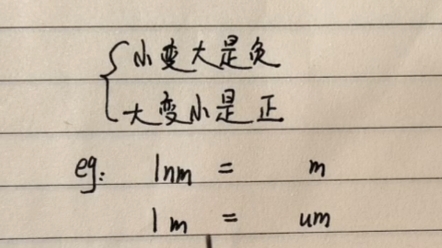 小变大是负
大变小是正
eg: 1nm = m
1m = um